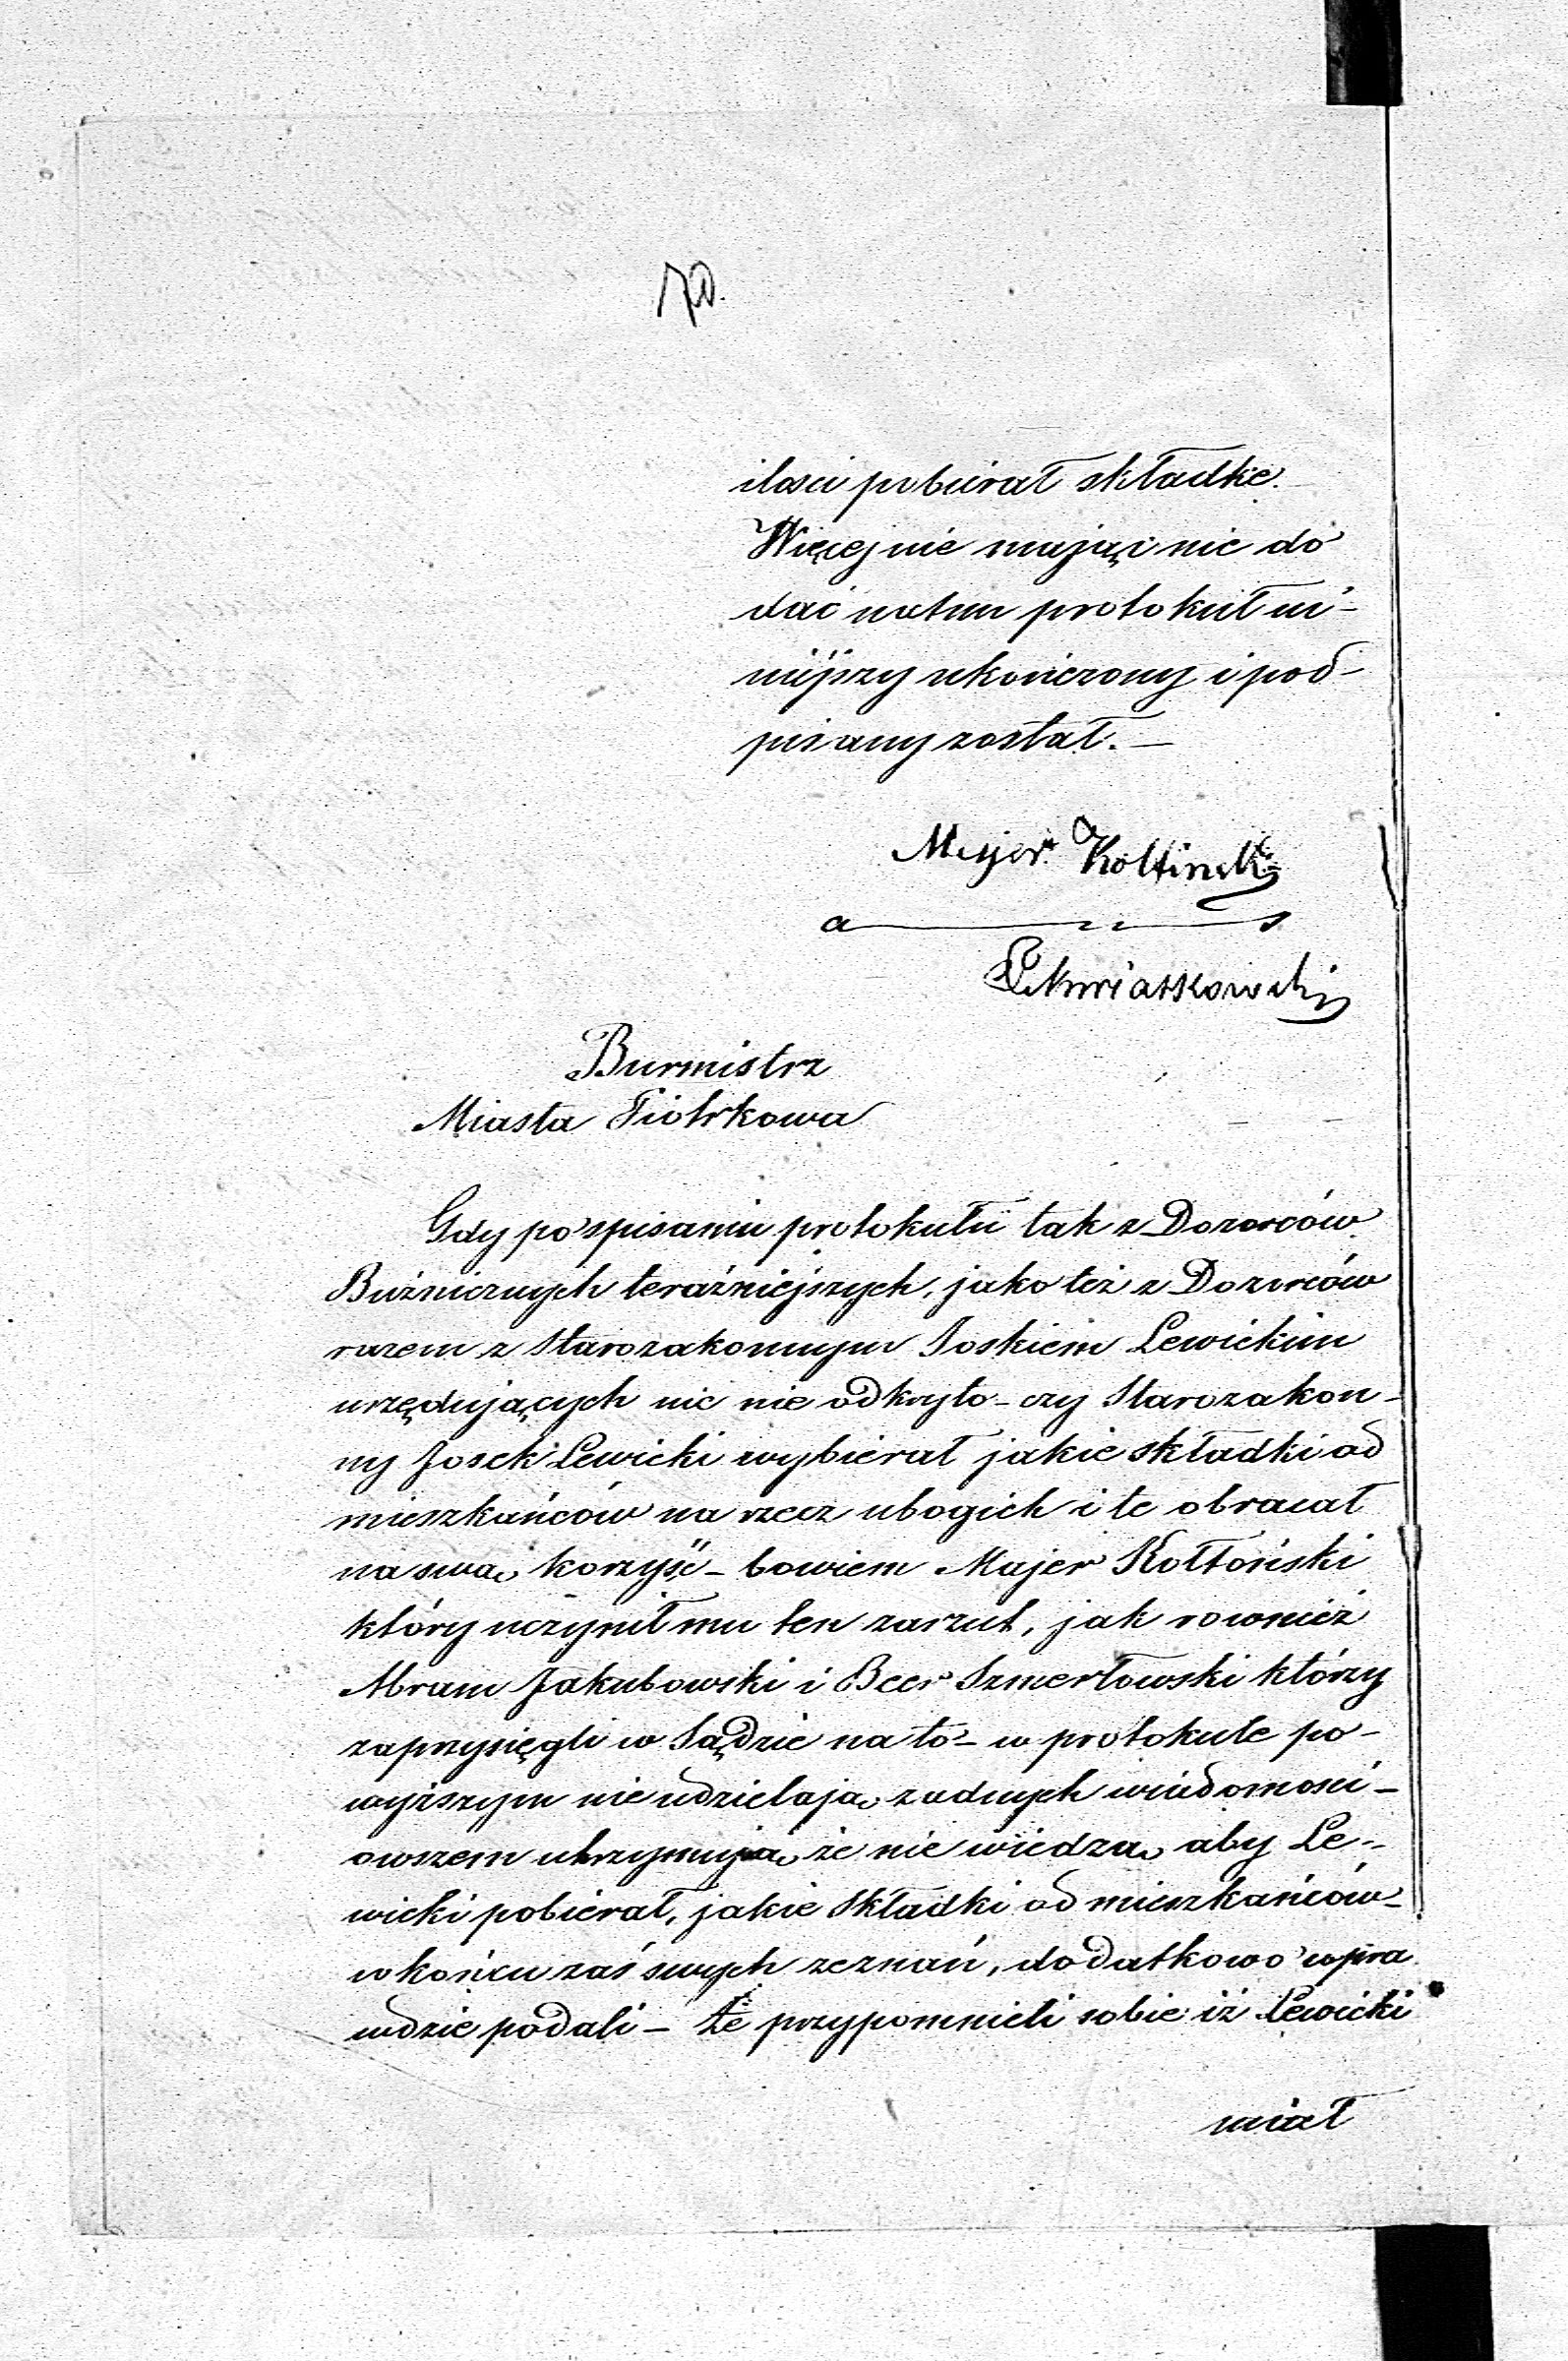 70.
ilosci pobierał składkę.
Więcej nie mając nic do
dać natem protokuł ni-
niejszy ukończony i pod-
pisany został. —
Majer Kołtinski
a ———— s
Kwiatkowski
Burmistrz
Miasta Piotrkowa
Gdy po spisaniu protokułu tak z Dozorców
Bużnicznych teraźniejszych, jako też z Dozorców
razem z Starozakonnym Joskiem Lewickim
urzędujących nic nie odkryto - czy Starozakon-
ny Josek Lewicki wybierał jakie składki od
mieszkańców na rzecz ubogich i te obracał
na swą korzyść - bowiem Majer Kołtoński
który uczynił mu ten zarzut, jak rownież
Abram Jakubowski i Beer Szmerłowski którzy
zaprzysięgli w Sądzie na to - w protokule po-
wyższym nie udzielają zadnych wiadomosci -
owszem utrzymują że nie wiedzą aby Le-
wicki pobierał, jakie Składki od mieszkańców -
w końcu zaś swych zeznań, dodatkowo wpra
wdzie podali - że przypomnieli sobie iż Lewicki
miał